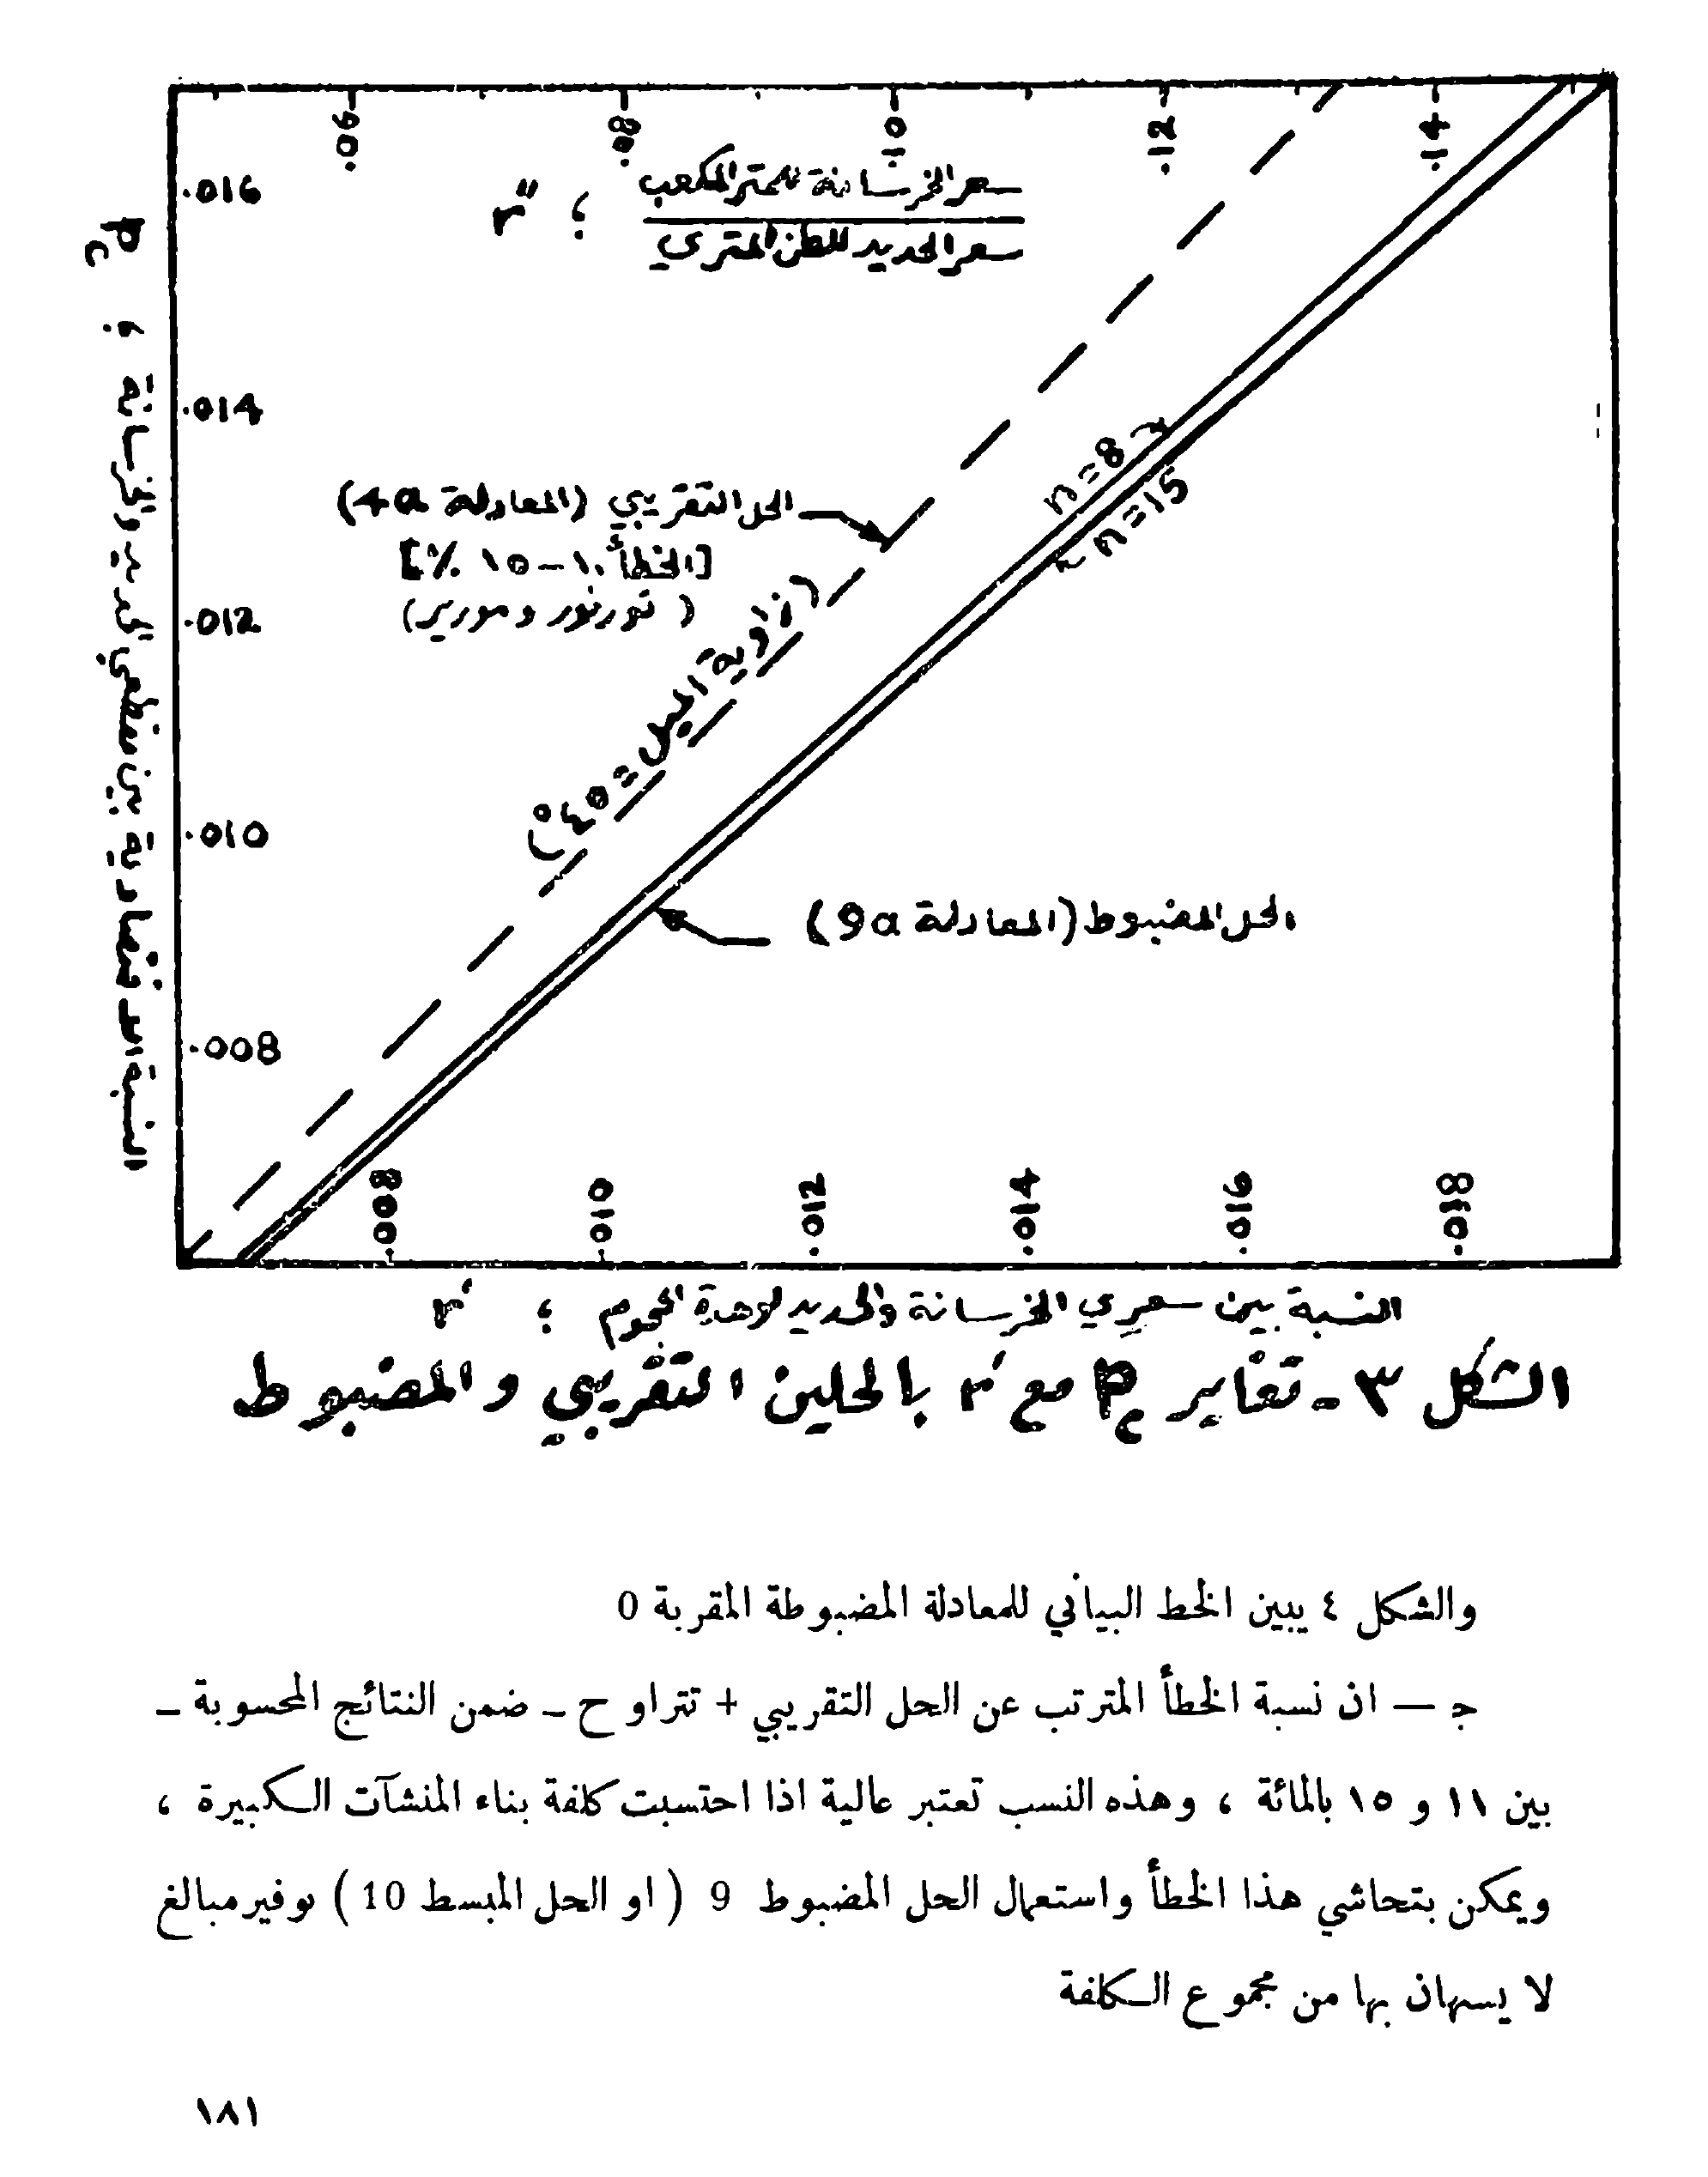 .06 .08 .10 .12 .14
سعر الخرسانة للمتر المكعب
سعر الحديد للطن المتري
؛ r"
.016
.014
.012
.010
.008
النسبة الاقتصادية بين مقطعي الحديد والخرسانة ؛ Pc
n=8
n=15
الحل التقريبي (المعادلة 4a)
[الخطأ ١٠-١٥ ٪]
( تورنور وموريير)
(زاوية الميل = ٤٥°)
الحل المضبوط (المعادلة 9a)
.008 .010 .012 .014 .016 .018
النسبة بين سعري الخرسانة والحديد لوحدة الحجوم ؛ r'
الشكل ٣ - تغاير Pc مع r' بالحلين التقريبي والمضبوط
والشكل ٤ يبين الخط البياني للمعادلة المضبوطة المقربة 0
جـ — ان نسبة الخطأ المترتب عن الحل التقريبي + تتراوح - ضمن النتائج المحسوبة -
بين ١١ و ١٥ بالمائة ، وهذه النسب تعتبر عالية اذا احتسبت كلفة بناء المنشآت الكبيرة ،
ويمكن بتحاشي هذا الخطأ واستعمال الحل المضبوط 9 ( او الحل المبسط 10 ) توفير مبالغ
لا يستهان بها من مجموع الكلفة
١٨١